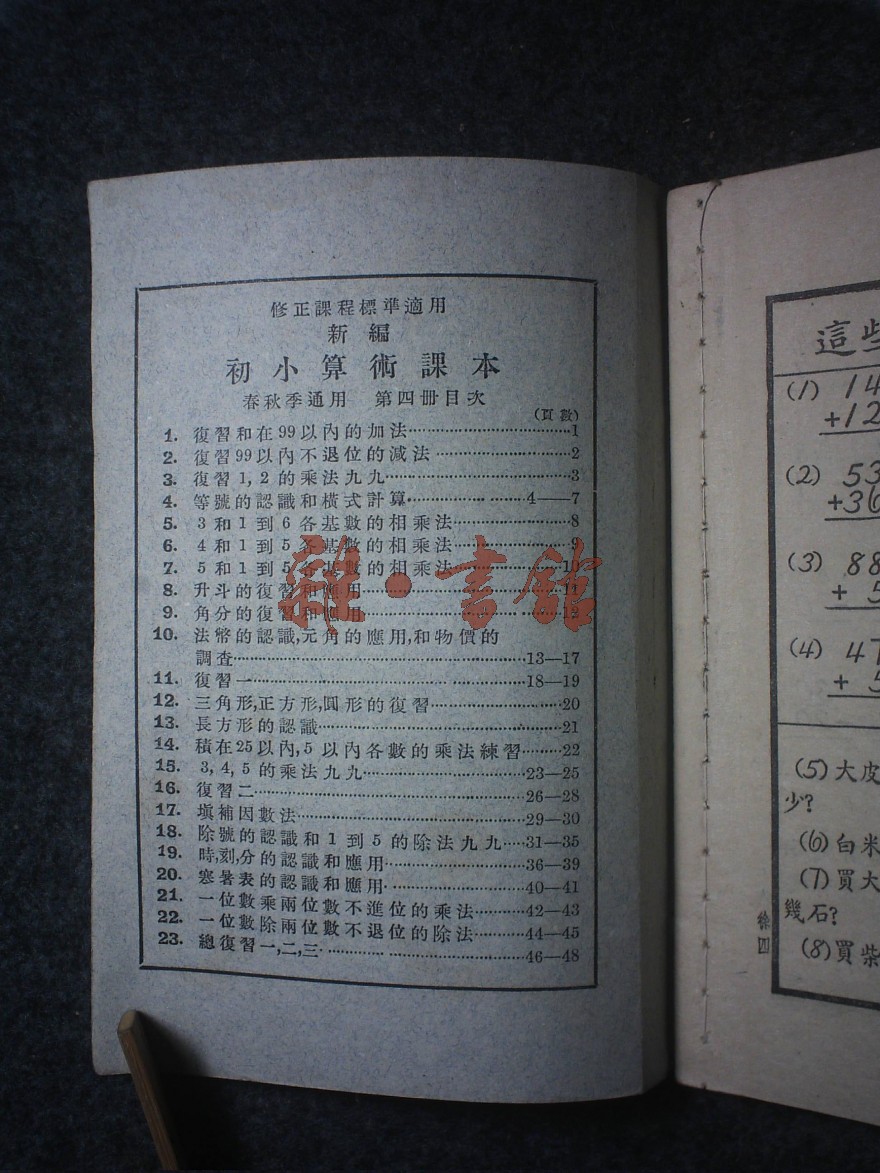 修正課程標準適用
新編
初小算術課本
春秋季通用 第四冊目次
(頁數)
1. 復習和在99以內的加法⋯⋯1
2. 復習99以內不退位的減法⋯⋯2
3. 復習1,2的乘法九九⋯⋯3
4. 等號的認識和橫式計算⋯⋯4——7
5. 3和1到6各基數的相乘法⋯⋯8
6. 4和1到5各基數的相乘法⋯⋯9
7. 5和1到5各基數的相乘法⋯⋯10
8. 升斗的復習和應用⋯⋯11
9. 角分的復習和應用⋯⋯12
10. 法幣的認識,元角的應用,和物價的
調查⋯⋯13—17
11. 復習一⋯⋯18—19
12. 三角形,正方形,圓形的復習⋯⋯20
13. 長方形的認識⋯⋯21
14. 積在25以內,5以內各數的乘法練習⋯⋯22
15. 3,4,5的乘法九九⋯⋯23—25
16. 復習二⋯⋯26—28
17. 塡補因數法⋯⋯29—30
18. 除號的認識和1到5的除法九九⋯⋯31—35
19. 時,刻,分的認識和應用⋯⋯36—39
20. 寒暑表的認識和應用⋯⋯40—41
21. 一位數乘兩位數不進位的乘法⋯⋯42—43
22. 一位數除兩位數不退位的除法⋯⋯44—45
23. 總復習一,二,三⋯⋯46—48
雜·書館
這些
(1) 14
+12
(2) 53
+36
(3) 88
+ 5
(4) 47
+ 5
(5)大皮
少?
(6)白米
(7)買大
幾石?
(8)買柴
四